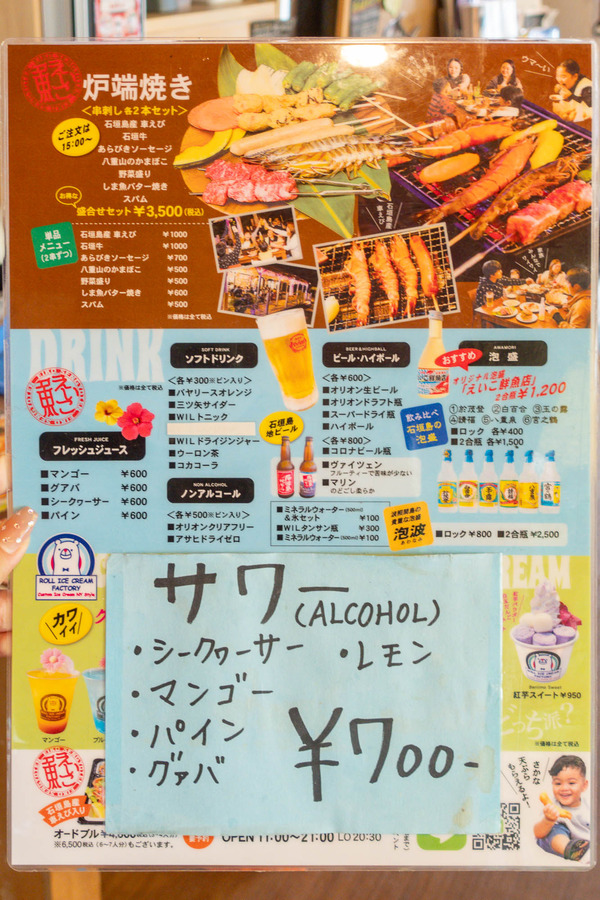 炉端焼き
<串刺し各2本セット>
ご注文は
15:00～
石垣島産 車えび
石垣牛
あらびきソーセージ
八重山のかまぼこ
野菜盛り
しま魚バター焼き
スパム
お得な
盛合せセット ¥3,500(税込)
単品
メニュー
(2串ずつ)
石垣島産 車えび ¥1000
石垣牛 ¥1000
あらびきソーセージ ¥700
八重山のかまぼこ ¥500
野菜盛り ¥500
しま魚バター焼き ¥600
スパム ¥500
※価格は全て税込
ウマ〜い
石垣島産
車えび
DRINK
※価格は全て税込
FRESH JUICE
フレッシュジュース
■マンゴー ¥600
■グアバ ¥600
■シークヮーサー ¥600
■パイン ¥600
SOFT DRINK
ソフトドリンク
<各¥300※ビン入り>
■バヤリースオレンジ
■三ツ矢サイダー
■WILトニック
■WILドライジンジャー
■ウーロン茶
■コカコーラ
NON ALCOHOL
ノンアルコール
<各¥500※ビン入り>
■オリオンクリアフリー
■アサヒドライゼロ
石垣島
地ビール
BEER&HIGHBALL
ビール・ハイボール
<各¥600>
■オリオン生ビール
■オリオンドラフト瓶
■スーパードライ瓶
■ハイボール
<各¥800>
■コロナビール瓶
■ヴァイツェン
フルーティーで苦味が少ない
■マリン
のどごし柔らか
■ミネラルウォーター(500ml)
&氷セット ¥100
■WILタンサン瓶 ¥300
■ミネラルウォーター(500ml) ¥100
おすすめ
AWAMORI
泡盛
オリジナル泡盛
「えいこ鮮魚店」
2合瓶 ¥1,200
飲み比べ
石垣島の
泡盛
①於茂登 ②白百合 ③玉の露
④請福 ⑤八重泉 ⑥宮之鶴
■ロック 各¥400
■2合瓶 各¥1,500
波照間島の
貴重な泡盛
泡波
あわなみ
■ロック¥800 ■2合瓶¥2,500
ROLL ICE CREAM
FACTORY
カワ
イイ
マンゴー
EAM
紅芋スイート ¥950
どっち派?
※価格は全て税込
サワー
(ALCOHOL)
・シークヮーサー ・レモン
・マンゴー
・パイン
・グァバ
¥700-
石垣島産
車えび入り
オードブル
※6,500税込(6～7人分)もございます。
OPEN 11:00～21:00 LO 20:30
さかな
天ぷら
もらえるよー